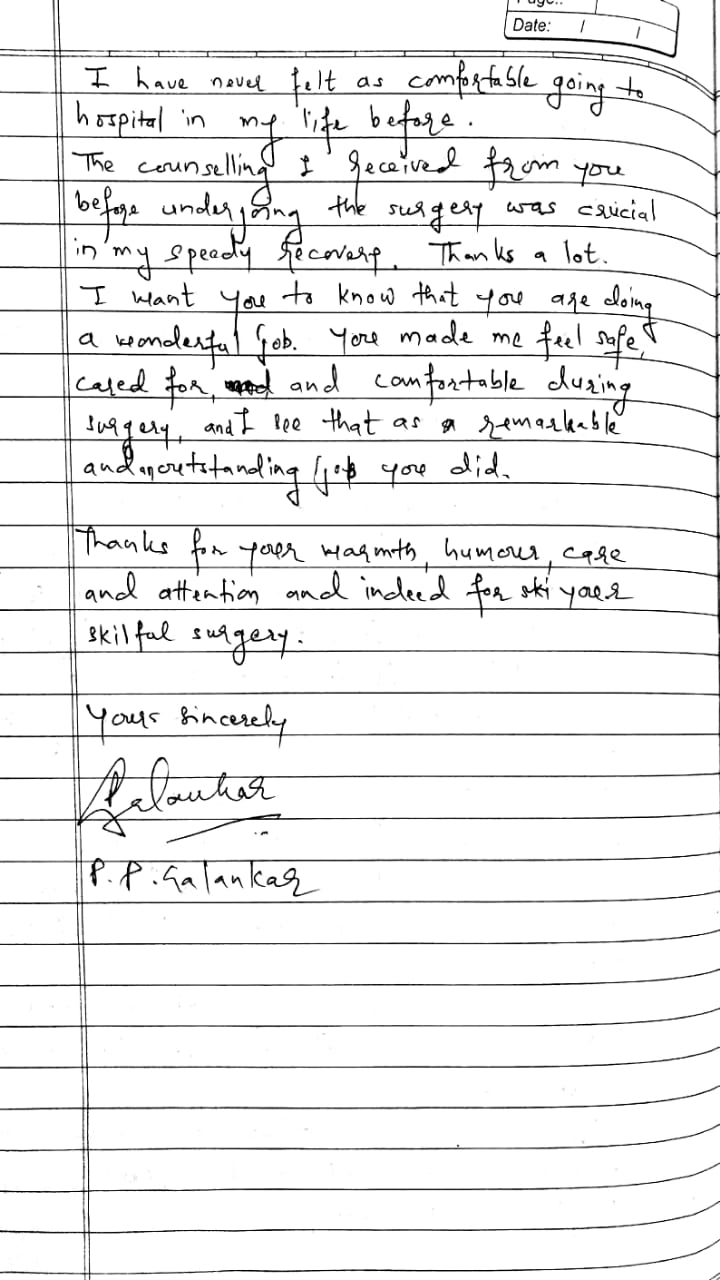 Page:
Date: / /
I have never felt as comfortable going to
hospital in my life before.
The counselling I received from you
before undergoing the surgery was crucial
in my speedy recovery. Thanks a lot.
I want you to know that you are doing
a wonderful job. You made me feel safe,
cared for, and comfortable during
surgery, and I see that as a remarkable
and an outstanding job you did.
Thanks for your warmth, humour, care
and attention and indeed for ski your
skilful surgery.
Yours sincerely
Galankar
P. P. Galankar